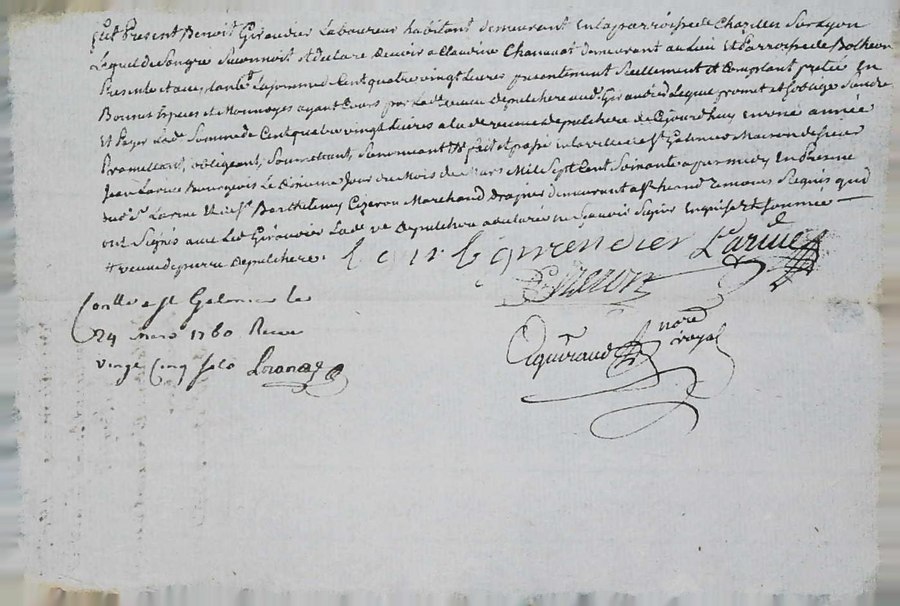 fut Present Benoit Girandier Laboureur habitant demeurant en la parroisse de Chazelles Sur Lyon
Lequel de Son gre a reconnoit et declare devoir a Claudine Chanavat demeurant au lieu et Parroisse de
Presente et acc. la Somme de Cent quatre vingt Livres presentement Reellement et Comptant pretée En
Bonnes Espèces et Monnoyes ayant Cours par Lade veuve depulchere aud. Girandier Lequel promet et s'oblige Rendre
Et Payer Lade Somme de Cent quatre vingt Livres a lade veuve depulchere de Cejourdhuy en une année
Promettant, obligeant, Soumettant, Renonceant fait et passé en la ville de St Galmier Maison de Sieur
Jean Larue Bourgeois Le Jour du Mois de Mars Mil Sept Cent Soixante apres midy En Presence
dud. Sr Larue et de Sr Barthelemy Cizeron Marchand Drapier demeurant a St heand Temoins Requis qui
ont Signés avec Led Girandier Lade ve depulchere a declarée ne Sçavoir Signer Enquise et Sommée
# veuve de pierre depulchere.
girendier Larue
Cizeron
Conllé a St Galmier le
24 mars 1760 Receu
vingt Cinq Sols
nore
royal